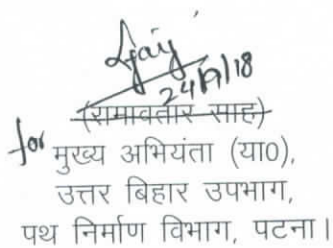 24/9/18
(रामावतार साह)
for मुख्य अभियंता (या0),
उत्तर बिहार उपभाग,
पथ निर्माण विभाग, पटना।